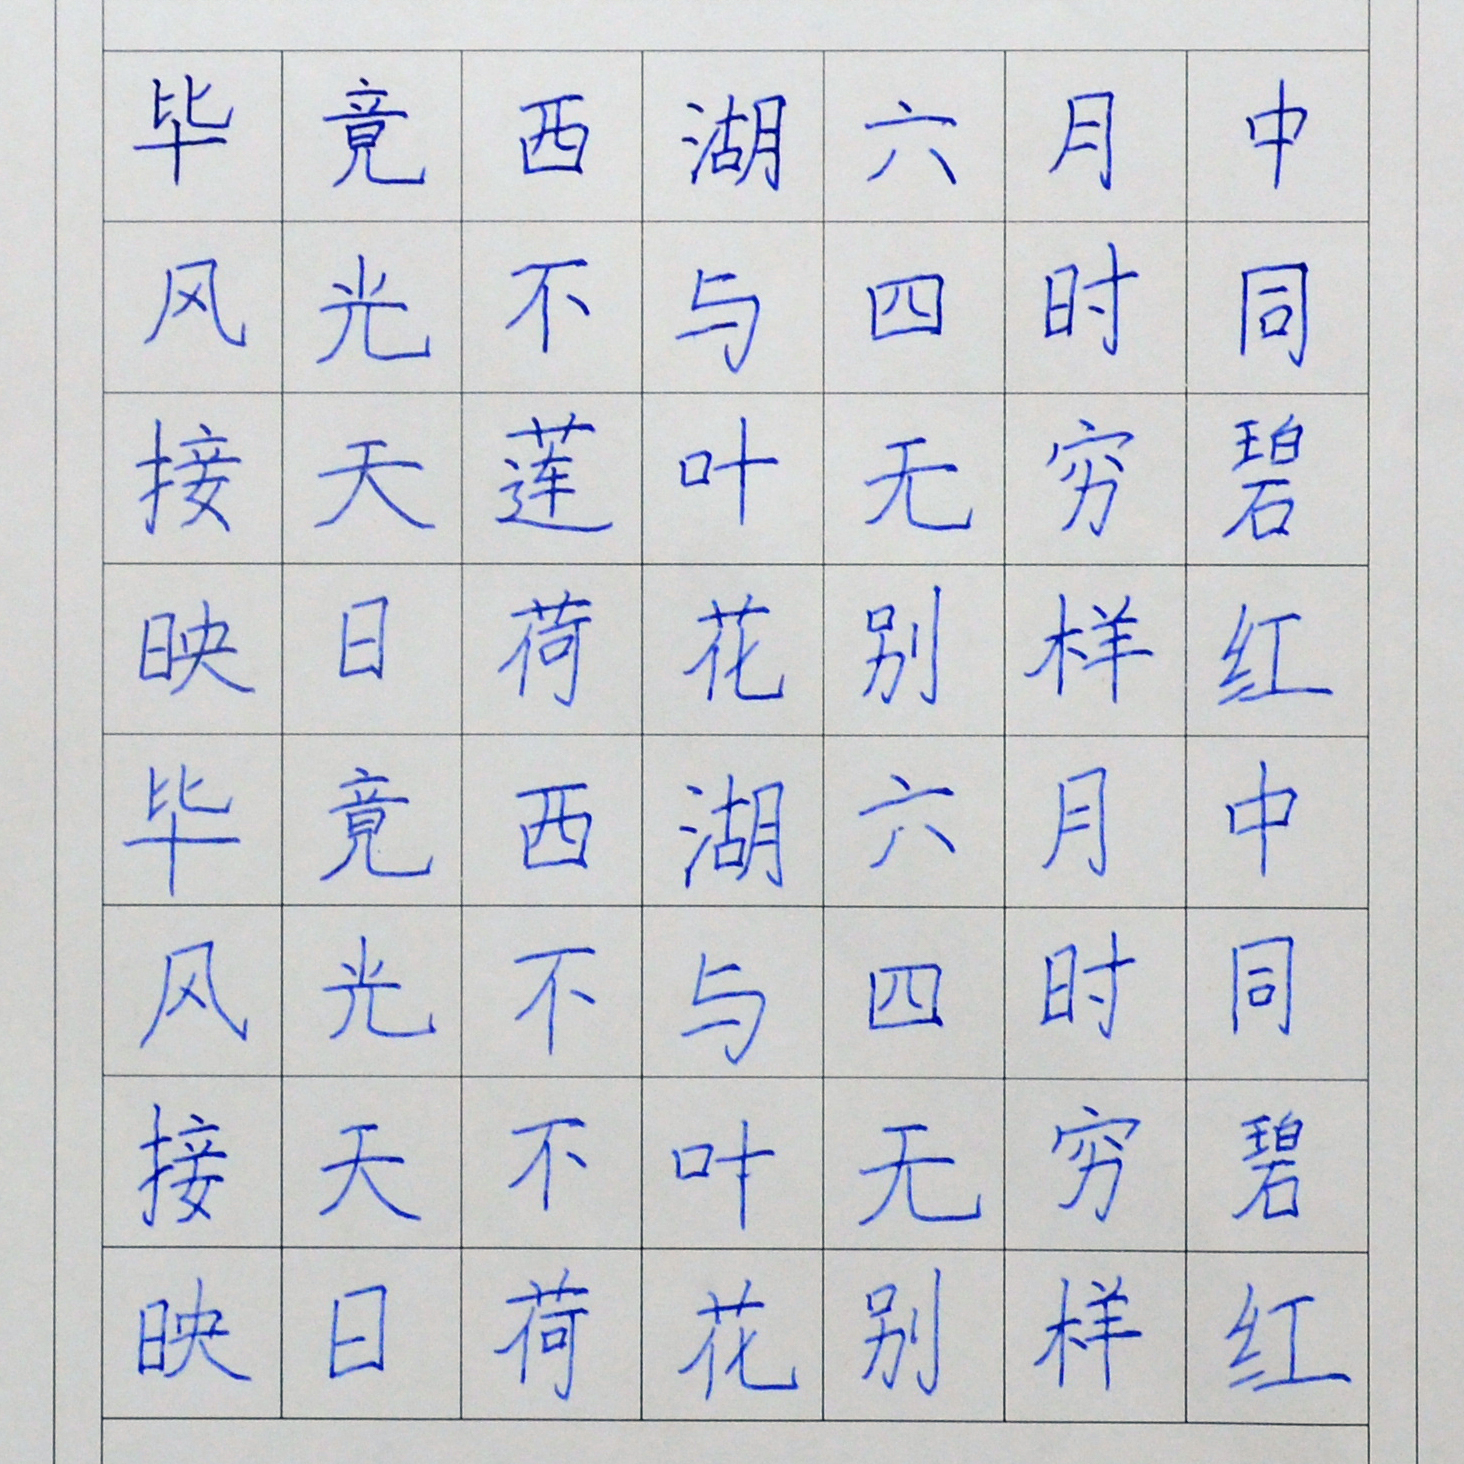 毕竟西湖六月中
风光不与四时同
接天莲叶无穷碧
映日荷花别样红
毕竟西湖六月中
风光不与四时同
接天不叶无穷碧
映日荷花别样红